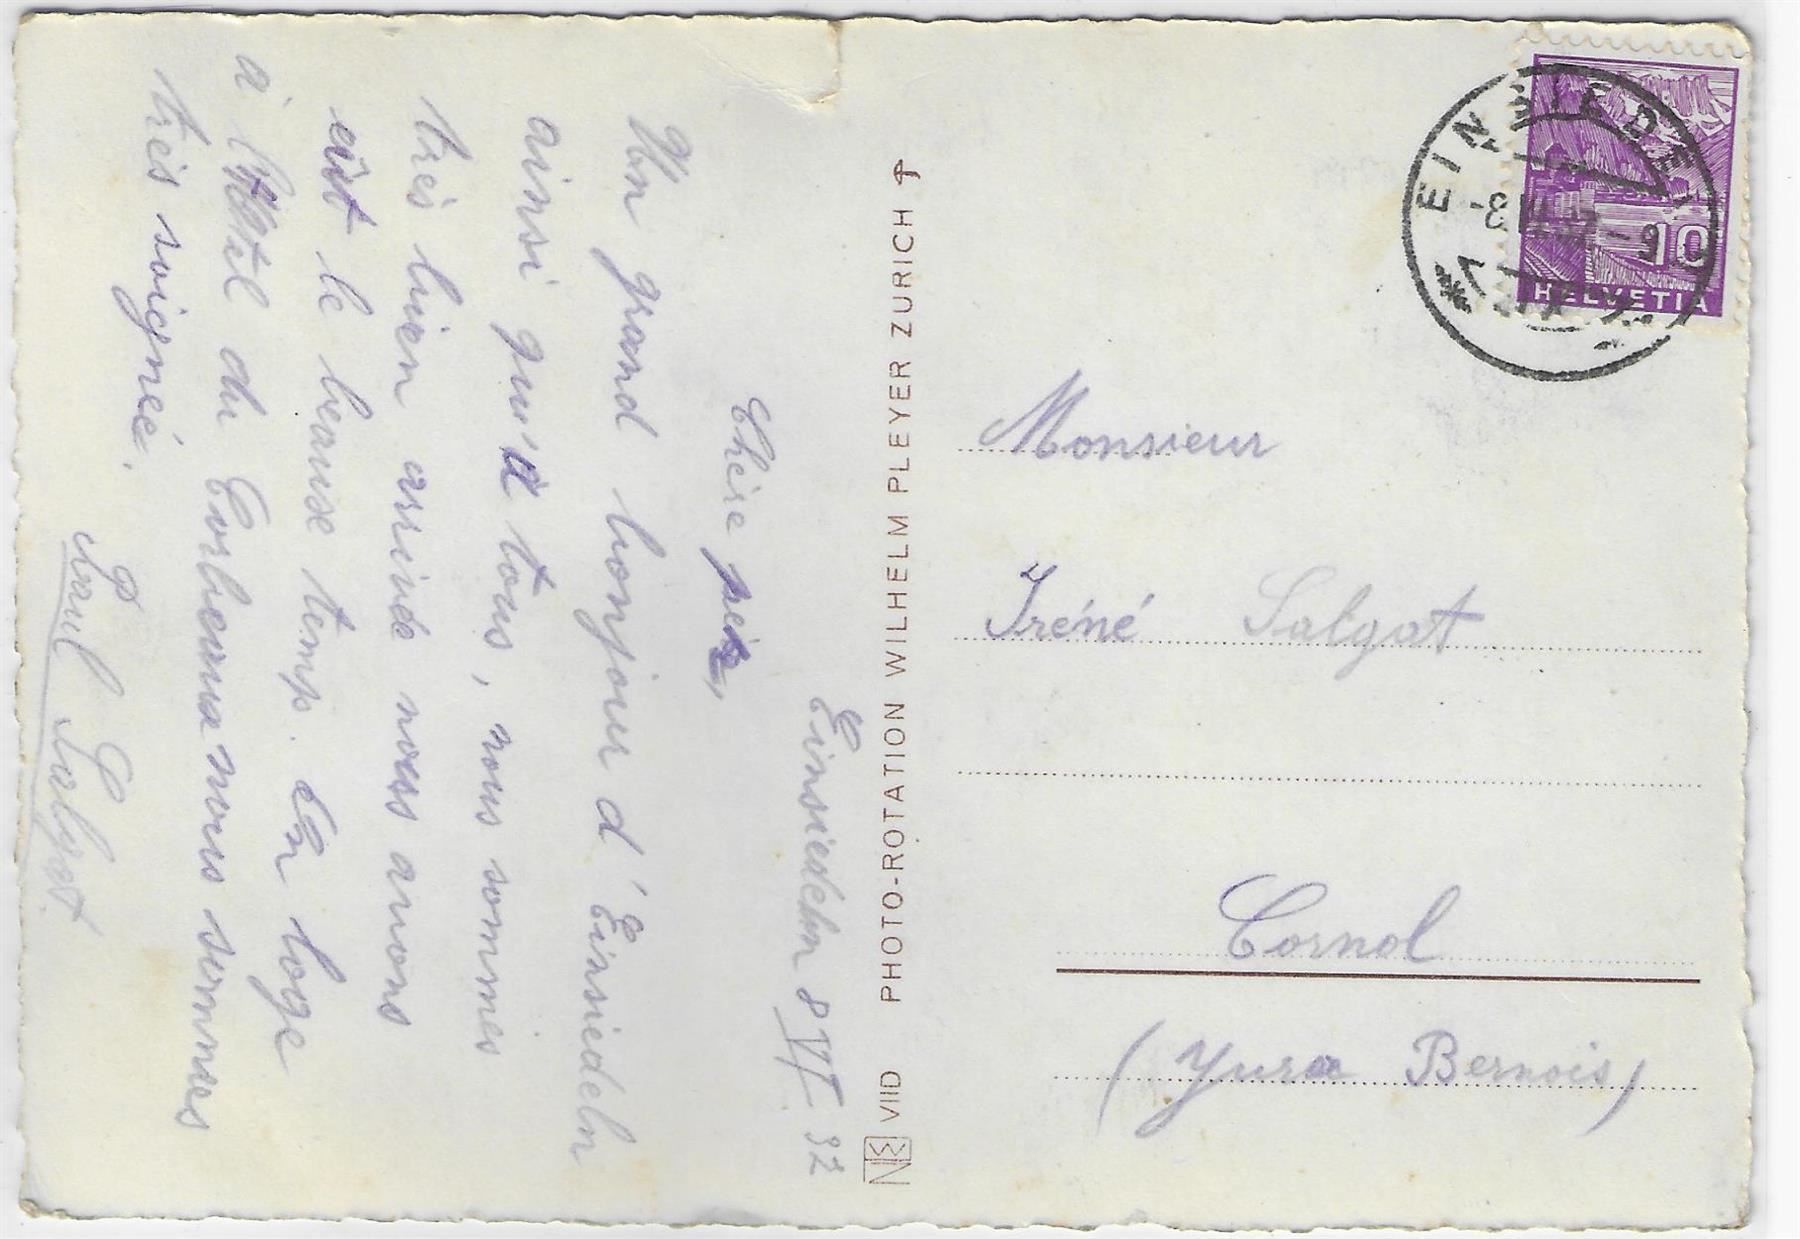 Einsiedeln 8 VI 37
Chère
Un grand bonjour d'Einsiedeln
ainsi qu'à tous, nous sommes
très bien arrivé nous avons
eût le beause temp. On loge
à l'Hôtel du Corbeau nous sommes
très soignéé.
Paul Salgat.
VIID PHOTO-ROTATION WILHELM PLEYER ZURICH
EINSIEDELN
10
HELVETIA
Monsieur
Iréné Salgat
Cornol
(Yura Bernois)